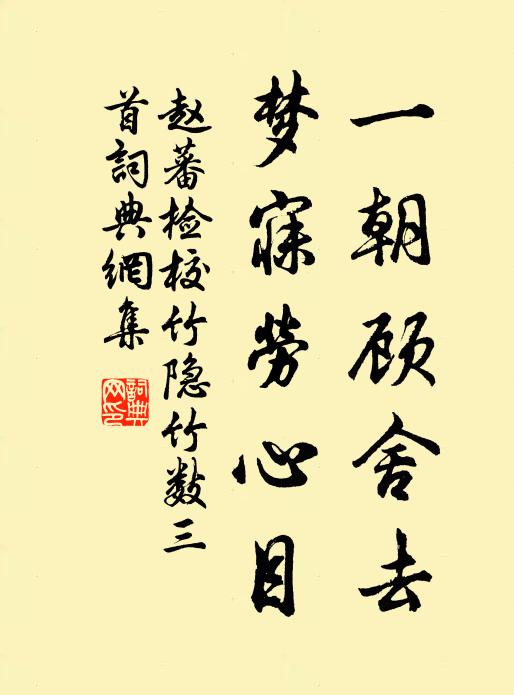 一朝顾舍去
梦寐劳心目
赵蕃检校竹隐竹数三
首詞典網集
詞典
网印